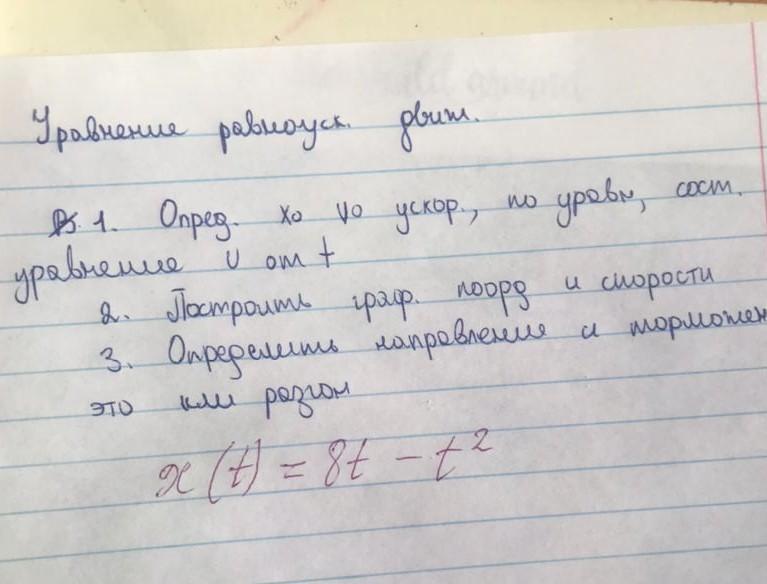 Уравнение равноуск. движ.
1. Опред. x0 v0 ускор., по уравн, сост.
уравнение v от t
2. Построить граф. коорд и скорости
3. Определить направление и торможен
это или разгон
x(t) = 8t - t²